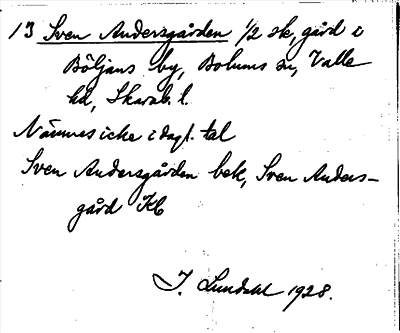 13 Sven Andersgården 1/2 sk, gård i
Böljans by, Bolums sn, Valle
hd, Skarab. l.
Nämnes icke i dagl. tal
Sven Andersgården bek, Sven Anders-
gård Kb
I. Lundahl 1928.